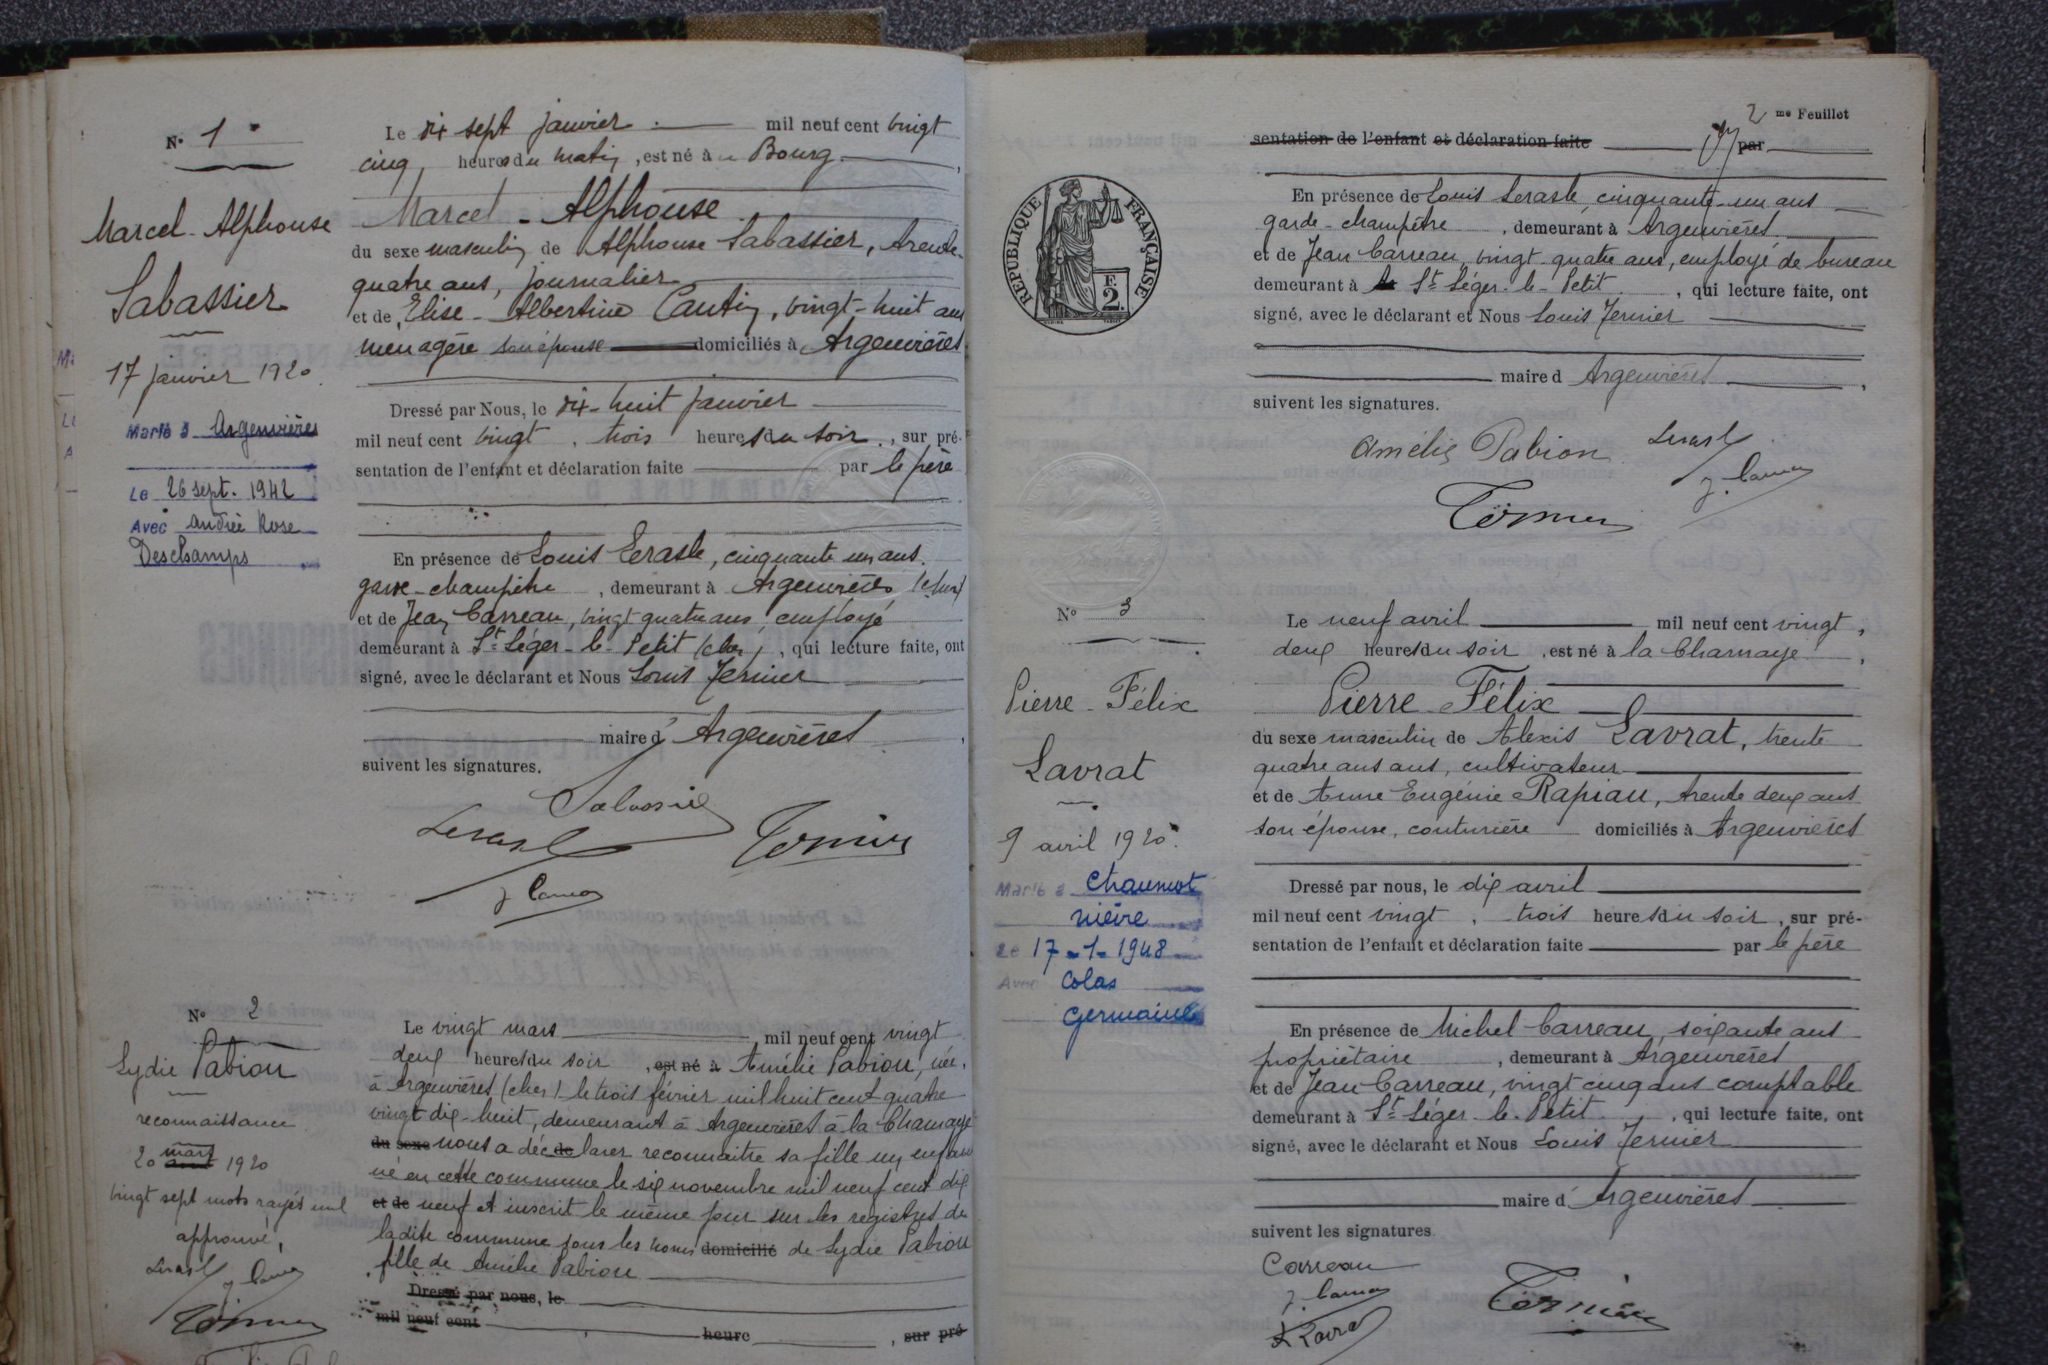 N° 1
Marcel-Alphonse
Sabassier
17 janvier 1920.
Marié à Argenvières
Le 26 sept. 1942
Avec Andrée Rose
Deschamps
Le dix sept janvier mil neuf cent vingt
cinq heures du matin, est né à u Bourg
Marcel-Alphonse
du sexe masculin de Alphonse Sabassier, trente-
quatre ans, journalier
et de Elise-Albertine Cautin, vingt-huit ans
ménagère son épouse domiciliés à Argenvières
Dressé par Nous, le dix-huit janvier
mil neuf cent vingt, trois heures du soir, sur pré-
sentation de l'enfant et déclaration faite par le père
En présence de Louis Lerasle, cinquante un ans
garde-champêtre, demeurant à Argenvières (cher)
et de Jean Carreau, vingt quatre ans, employé
demeurant à St Léger-le-Petit (cher), qui lecture faite, ont
signé, avec le déclarant et Nous Louis Ternier
maire d'Argenvières
suivent les signatures.
Lerasle
J. Carreau
N° 2
Lydie Pabiou
reconnaissance
20 mars 1920
vingt sept mots rayés nul
approuvé,
Lerasle J. Carreau
Le vingt mars mil neuf cent vingt
deux heures du soir, est né à Amélie Pabiou, née,
à Argenvières (cher) le trois février mil huit cent quatre
vingt dix-huit, demeurant à Argenvières à la Charnaye
du sexe nous a déc de larer reconnaitre sa fille un enfant
né en cette commune le six novembre mil neuf cent dix
et de neuf et inscrit le même jour sur les registres de
ladite commune sous les noms domicilié de Lydie Pabiou
fille de Amélie Pabiou
Dressé par nous, le
mil neuf cent heure, sur pré
2 me Feuillet
sentation de l'enfant et déclaration faite par
RÉPUBLIQUE FRANÇAISE
F.
2.
En présence de Louis Lerasle, cinquante-un ans
garde-champêtre, demeurant à Argenvières
et de Jean Carreau, vingt-quatre ans, employé de bureau
demeurant à St Léger-le-Petit, qui lecture faite, ont
signé, avec le déclarant et Nous Louis Ternier
maire d Argenvières,
suivent les signatures.
Amélie Pabion Lerasle
J. Carreau
N° 3
Pierre-Félix
Lavrat
9 avril 1920.
Marié à Chaumot
nièvre
Le 17-1-1948
Avec Colas
Germaine
Le neuf avril mil neuf cent vingt,
deux heures du soir, est né à la Charnaye,
Pierre Félix
du sexe masculin de Alexis Lavrat, trente
quatre ans ans, cultivateur
et de Anne Eugénie Rapiau, trente deux ans
son épouse, couturière domiciliés à Argenvières
Dressé par nous, le dix avril
mil neuf cent vingt, trois heures du soir, sur pré-
sentation de l'enfant et déclaration faite par le père
En présence de Michel Carreau, soixante ans
propriétaire, demeurant à Argenvières
et de Jean Carreau, vingt cinq ans comptable
demeurant à St Léger-le-Petit, qui lecture faite, ont
signé, avec le déclarant et Nous Louis Ternier
maire d'Argenvières
suivent les signatures
Carreau
J. Carreau
A Lavrat